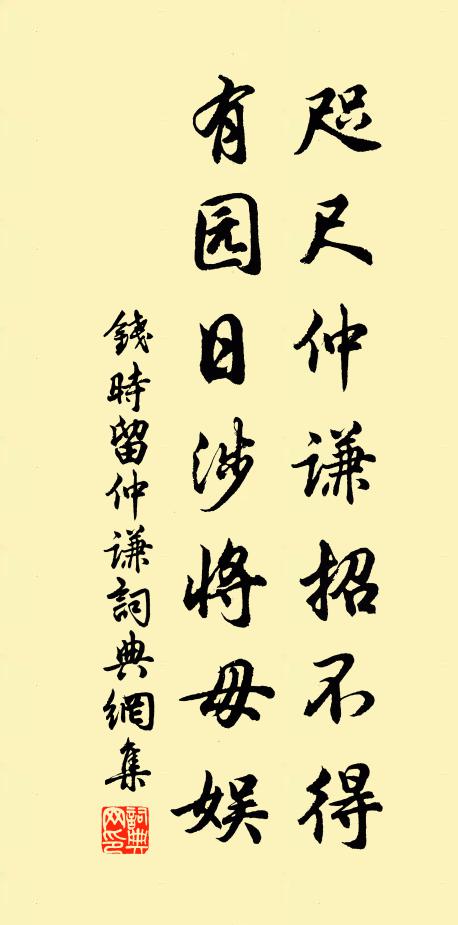 咫尺仲谦招不得
有园日涉将毋娱
錢時留仲谦詞典網集
詞典网印